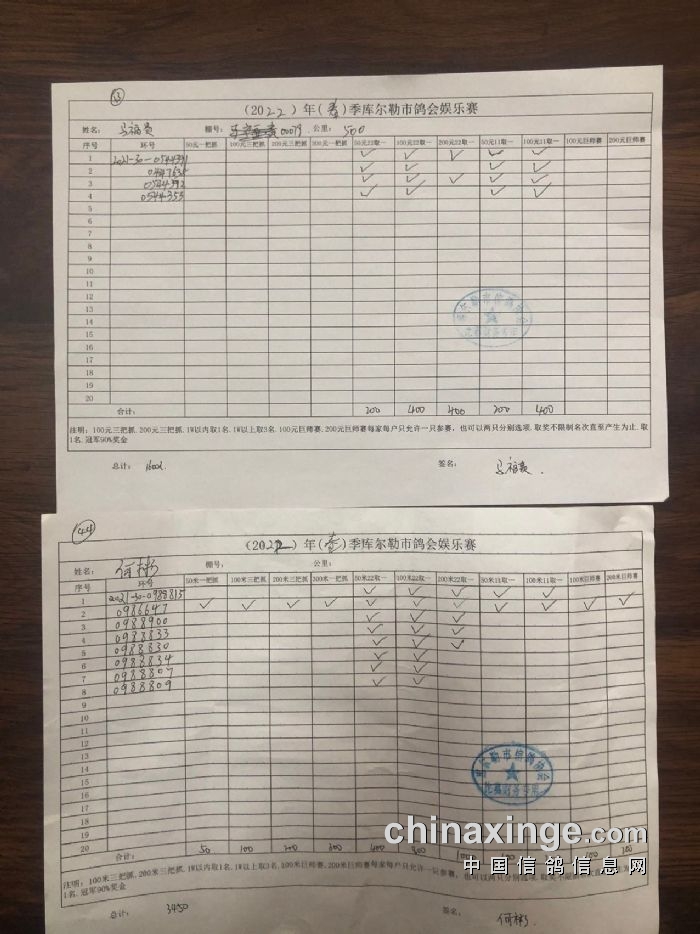 (2022)年(春)季库尔勒市鸽会娱乐赛
姓名: 马福贵 棚号: 00079 公里: 500
序号 环号 50元一把抓 100元三把抓 200元三把抓 300元一抓 50元22取一 100元22取一 200元22取一 50元11取一 100元11取一 100元巨师赛 200元巨师赛
1 2021-30-0544391 ✓ ✓ ✓ ✓ ✓
2 ✓ ✓ ✓ ✓
3 0544392 ✓ ✓ ✓ ✓ ✓
4 0544353 ✓ ✓ ✓ ✓
5
6
7
8
9
10
11
12
13
14
15
16
17
18
19
20
合计: 200 400 400 200 400
注明: 100元三把抓.200元三把抓.1W以内取1名.1W以上取3名.100元巨师赛.200元巨师赛每家每户只允许一只参赛, 也可以两只分别选项.取奖不限制名次直至产生为止.取
1名.冠军90%奖金
总计: 1600 签名: 马福贵
44
(2022)年(春)季库尔勒市鸽会娱乐赛
姓名: 何彬 棚号: 公里:
序号 环号 50米一把抓 100米三把抓 200米三把抓 300米一抓 50米22取一 100米22取一 200米22取一 50米11取一 100米11取一 100米巨师赛 200米巨师赛
1 2021-30-0988815 ✓ ✓ ✓ ✓ ✓
2 0986647 ✓ ✓ ✓ ✓ ✓ ✓ ✓ ✓ ✓ ✓ ✓
3 0988900 ✓ ✓ ✓
4 0988833 ✓ ✓ ✓
5 0988830 ✓ ✓ ✓
6 0988834 ✓ ✓
7 0988807 ✓ ✓
8 0988809 ✓ ✓
9
10
11
12
13
14
15
16
17
18
19
20
合计: 50 100 200 300 400 800
注明: 100米三把抓.200米三把抓.1W以内取1名.1W以上取3名.100米巨师赛.200米巨师赛每家每户只允许一只参赛, 也可以两只分别选项.取奖不限制名次直至产生为止.取
1名.冠军90%奖金
总计: 3450 签名: 何彬
chinaxinge.com
中国信鸽信息网